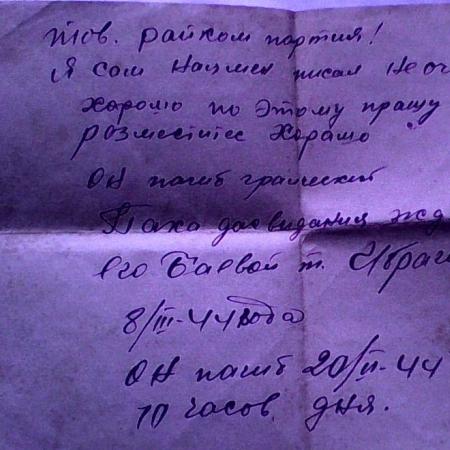 Тов. райком партия!
Я сам Нацмен писал Не оч
хорошо по этому прашу
розместитес Харашо
ОН погиб
Пака досвидания жд
его Баевой т. Ибраг
8/III-44 года
ОН погиб 20/II-44
10 часов дня.